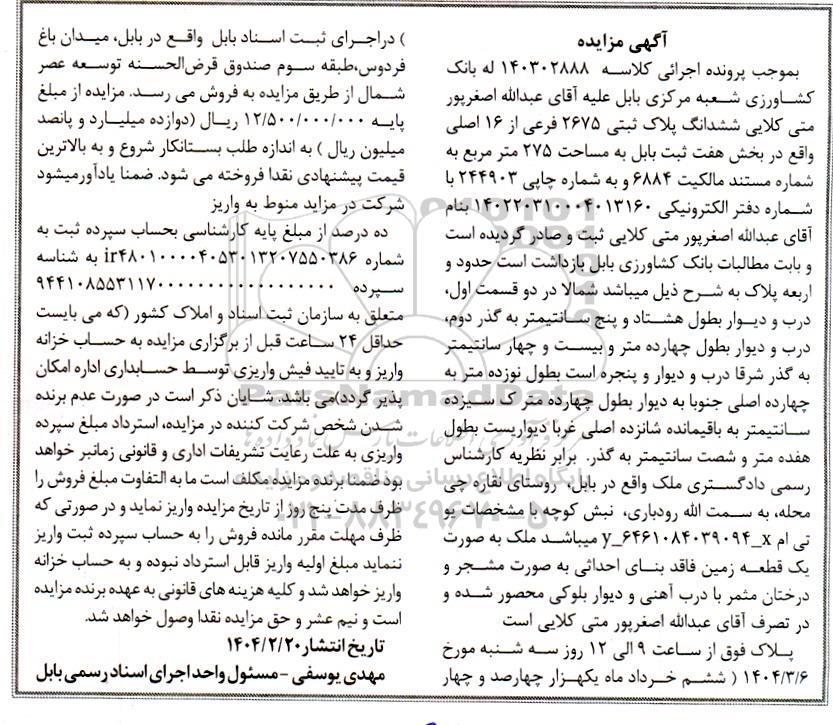 آگهی مزایده
بموجب پرونده اجرائی کلاسه ۱۴۰۳۰۲۸۸۸ له بانک
کشاورزی شعبه مرکزی بابل علیه آقای عبدالله اصغرپور
متی کلایی ششدانگ پلاک ثبتی ۲۶۷۵ فرعی از ۱۶ اصلی
واقع در بخش هفت ثبت بابل به مساحت ۲۷۵ متر مربع به
شماره مستند مالکیت ۶۸۸۴ و به شماره چاپی ۲۴۴۹۰۳ با
شماره دفتر الکترونیکی ۱۴۰۲۲۰۳۱۰۰۰۴۰۱۳۱۶۰ بنام
آقای عبدالله اصغرپور متی کلایی ثبت و صادر گردیده است
و بابت مطالبات بانک کشاورزی بابل بازداشت است حدود و
اربعه پلاک به شرح ذیل میباشد شمالا در دو قسمت اول،
درب و دیوار بطول هشتاد و پنج سانتیمتر به گذر دوم،
درب و دیوار بطول چهارده متر و بیست و چهار سانتیمتر
به گذر شرقا درب و دیوار و پنجره است بطول نوزده متر به
چهارده اصلی جنوبا به دیوار بطول چهارده متر ک سیزده
سانتیمتر به باقیمانده شانزده اصلی غربا دیواریست بطول
هفده متر و شصت سانتیمتر به گذر. برابر نظریه کارشناس
رسمی دادگستری ملک واقع در بابل، روستای نقاره چی
محله، به سمت الله رودباری، نبش کوچه با مشخصات یو
تی ام y_۶۴۶۱۰۸۴۰۳۹۰۹۴_x میباشد ملک به صورت
یک قطعه زمین فاقد بنای احداثی به صورت مشجر و
درختان مثمر با درب آهنی و دیوار بلوکی محصور شده و
در تصرف آقای عبدالله اصغرپور متی کلایی است
پلاک فوق از ساعت ۹ الی ۱۲ روز سه شنبه مورخ
۱۴۰۴/۳/۶ ( ششم خرداد ماه یکهزار چهارصد و چهار
) دراجرای ثبت اسناد بابل واقع در بابل، میدان باغ
فردوس،طبقه سوم صندوق قرض‌الحسنه توسعه عصر
شمال از طریق مزایده به فروش می رسد. مزایده از مبلغ
پایه ۱۲/۵۰۰/۰۰۰/۰۰۰ ریال (دوازده میلیارد و پانصد
میلیون ریال ) به اندازه طلب بستانکار شروع و به بالاترین
قیمت پیشنهادی نقدا فروخته می شود. ضمنا یادآورمیشود
شرکت در مزاید منوط به واریز
ده درصد از مبلغ پایه کارشناسی بحساب سپرده ثبت به
شماره ir۴۸۰۱۰۰۰۰۴۰۵۳۰۱۳۲۰۷۵۵۰۳۸۶ به شناسه
سپرده
متعلق به سازمان ثبت اسناد و املاک کشور (که می بایست
حداقل ۲۴ ساعت قبل از برگزاری مزایده به حساب خزانه
واریز و به تایید فیش واریزی توسط حسابداری اداره امکان
پذیر گردد)می باشد. شایان ذکر است در صورت عدم برنده
شدن شخص شرکت کننده در مزایده، استرداد مبلغ سپرده
واریزی به علت رعایت تشریفات اداری و قانونی زمانبر خواهد
بود ضمنا برنده مزایده مکلف است ما به التفاوت مبلغ فروش را
ظرف مدت پنج روز از تاریخ مزایده واریز نماید و در صورتی که
ظرف مهلت مقرر مانده فروش را به حساب سپرده ثبت واریز
ننماید مبلغ اولیه واریز قابل استرداد نبوده و به حساب خزانه
واریز خواهد شد و کلیه هزینه های قانونی به عهده برنده مزایده
است و نیم عشر و حق مزایده نقدا وصول خواهد شد.
تاریخ انتشار۱۴۰۴/۲/۲۰
مهدی یوسفی - مسئول واحد اجرای اسناد رسمی بابل
ParsNamadData
پایگاه اطلاع رسانی مناقصه و مزایده
۰۲۱-۸۸۳۴۹۶۷۰-۵